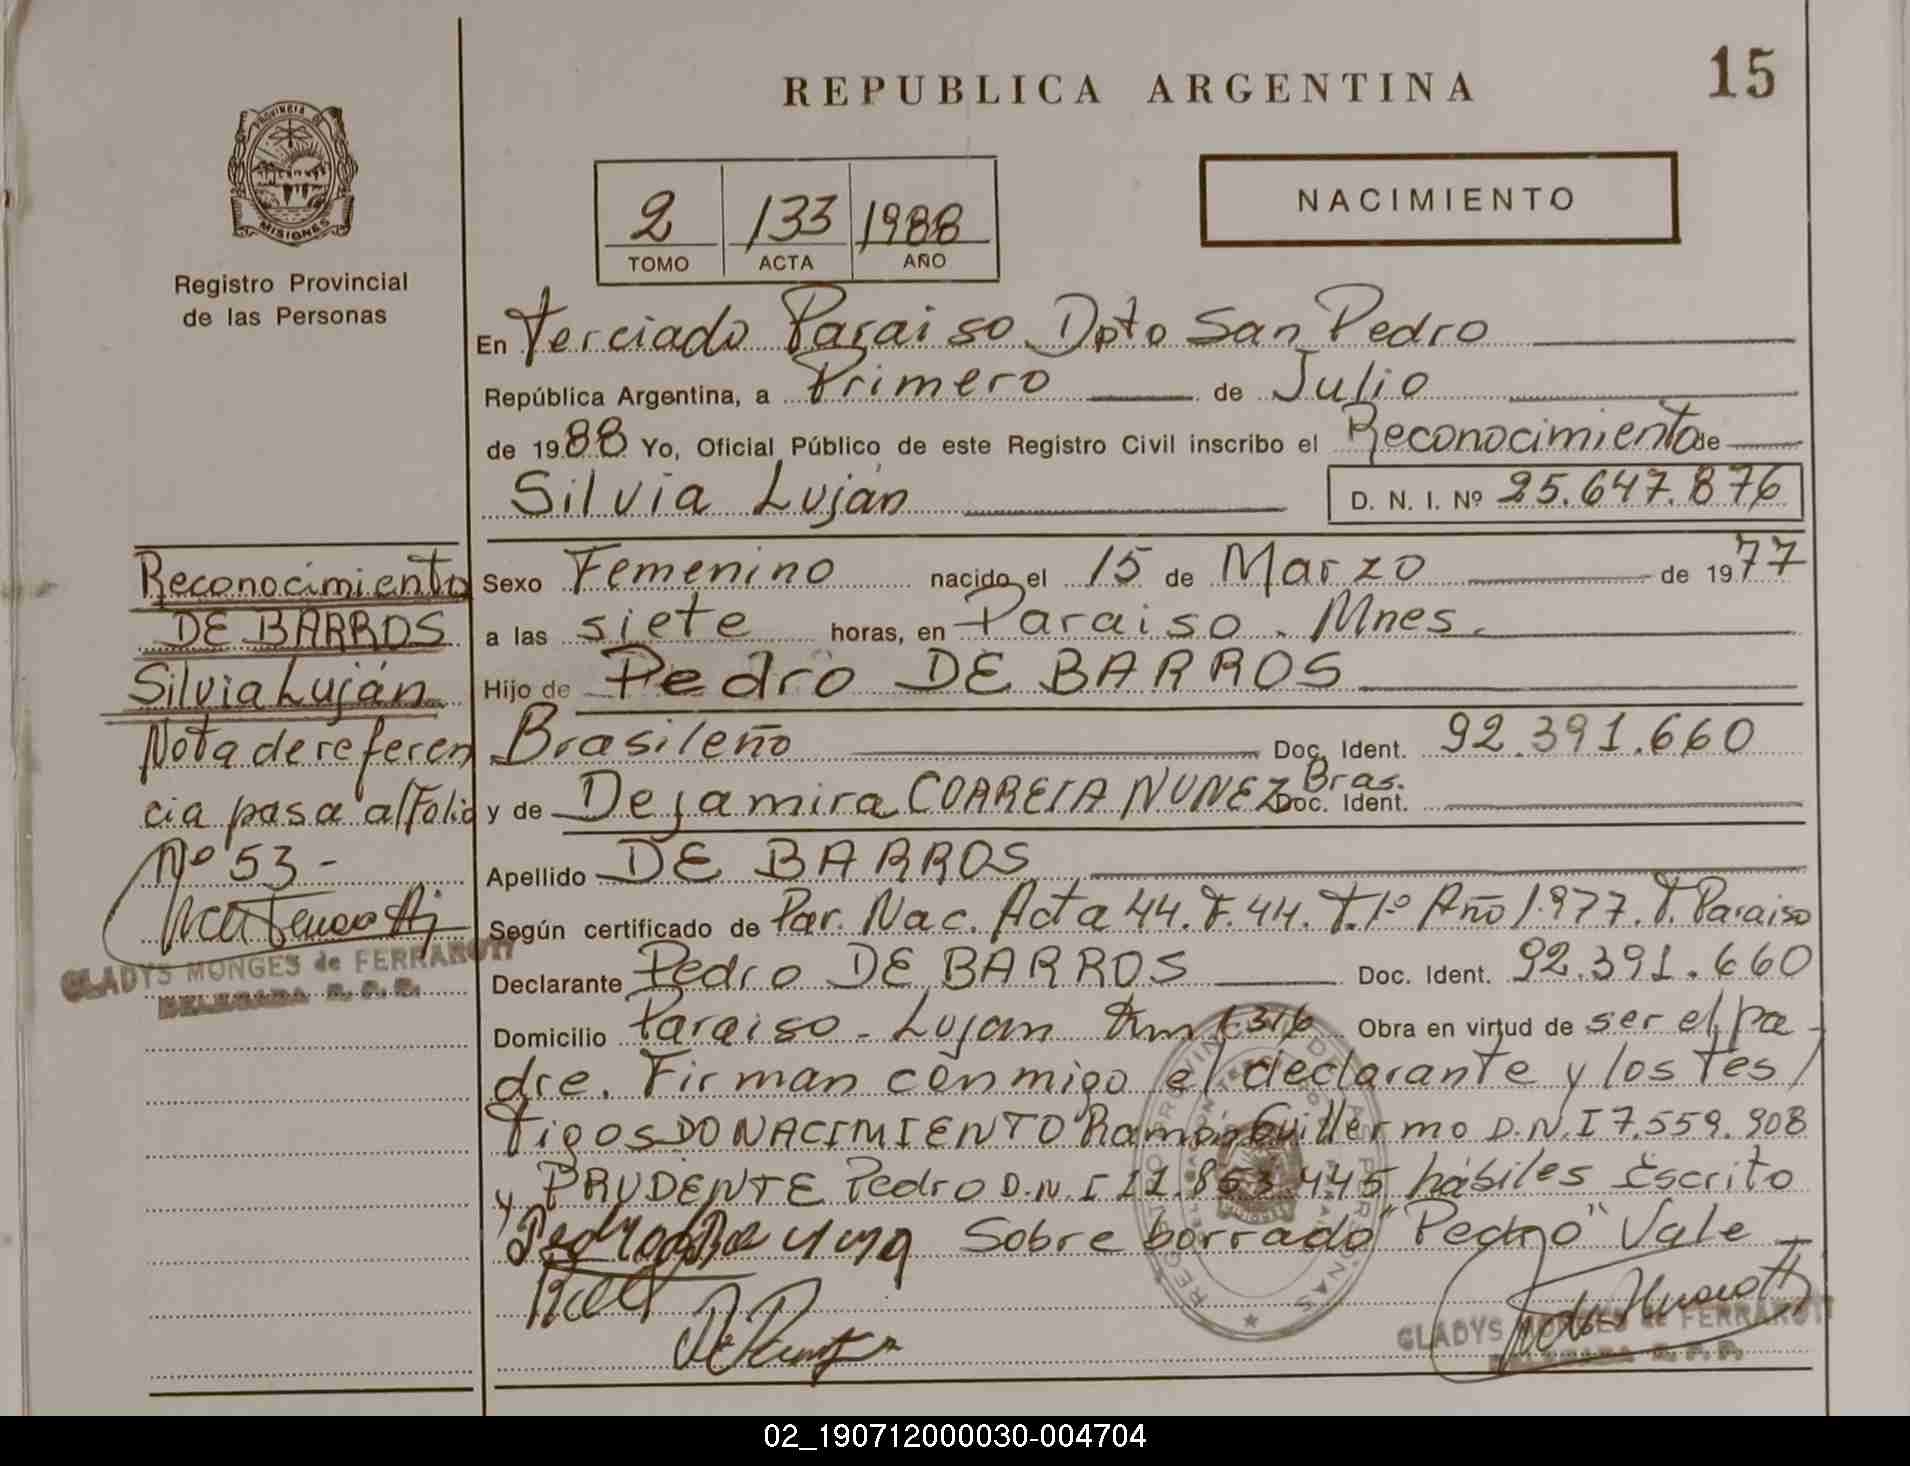 REPUBLICA ARGENTINA
15
PROVINCIA DE
MISIONES
Registro Provincial
de las Personas
2 133 1988
TOMO ACTA AÑO
NACIMIENTO
En Terciado Paraiso Dpto San Pedro
República Argentina, a Primero de Julio
de 1988 Yo, Oficial Público de este Registro Civil inscribo el Reconocimiento de
Silvia Luján D. N. I. Nº 25.647.876
Sexo Femenino nacido el 15 de Marzo de 1977
a las siete horas, en Paraiso. Mnes.
Hijo de Pedro DE BARROS
Brasileño Doc. Ident. 92.391.660
y de Dejamira CORREIA NUNEZ Bras. Doc. Ident.
Apellido DE BARROS
Según certificado de Par. Nac. Acta 44. F. 44. T. 1º Año 1.977. T. Paraiso
Declarante Pedro DE BARROS Doc. Ident. 92.391.660
Domicilio Paraiso - Lujan Km 1316 Obra en virtud de ser el pa-
dre. Firman conmigo el declarante y los tes/
tigos DO NACIMIENTO Ramón Guillermo D.N.I 7.559.908
y PRUDENTE Pedro D.N.I 11.853.445 hábiles Escrito
Sobre borrado "Pedro" Vale
Reconocimiento
DE BARROS
Silvia Luján
Nota de referen
cia pasa al Folio
Nº 53-
GLADYS MONGES de FERRAROTI
DELEGADA R. P. P.
GLADYS MONGES de FERRAROTI
DELEGADA R. P. P.
02_190712000030-004704